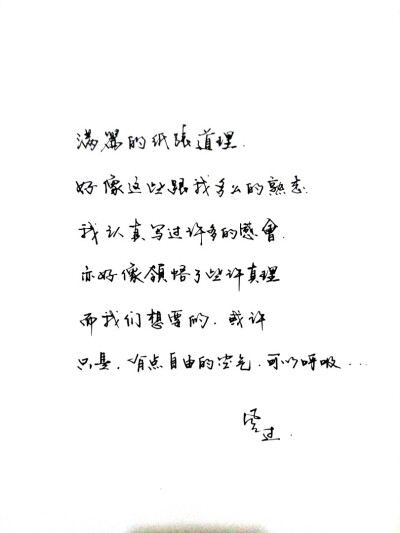 满墨的纸张道理.
好像这些跟我多么的熟悉
我认真写过许多的感会.
亦好像领悟了些许真理
而我们想要的.或许
只是.有点自由的空气.可以呼吸...
过.